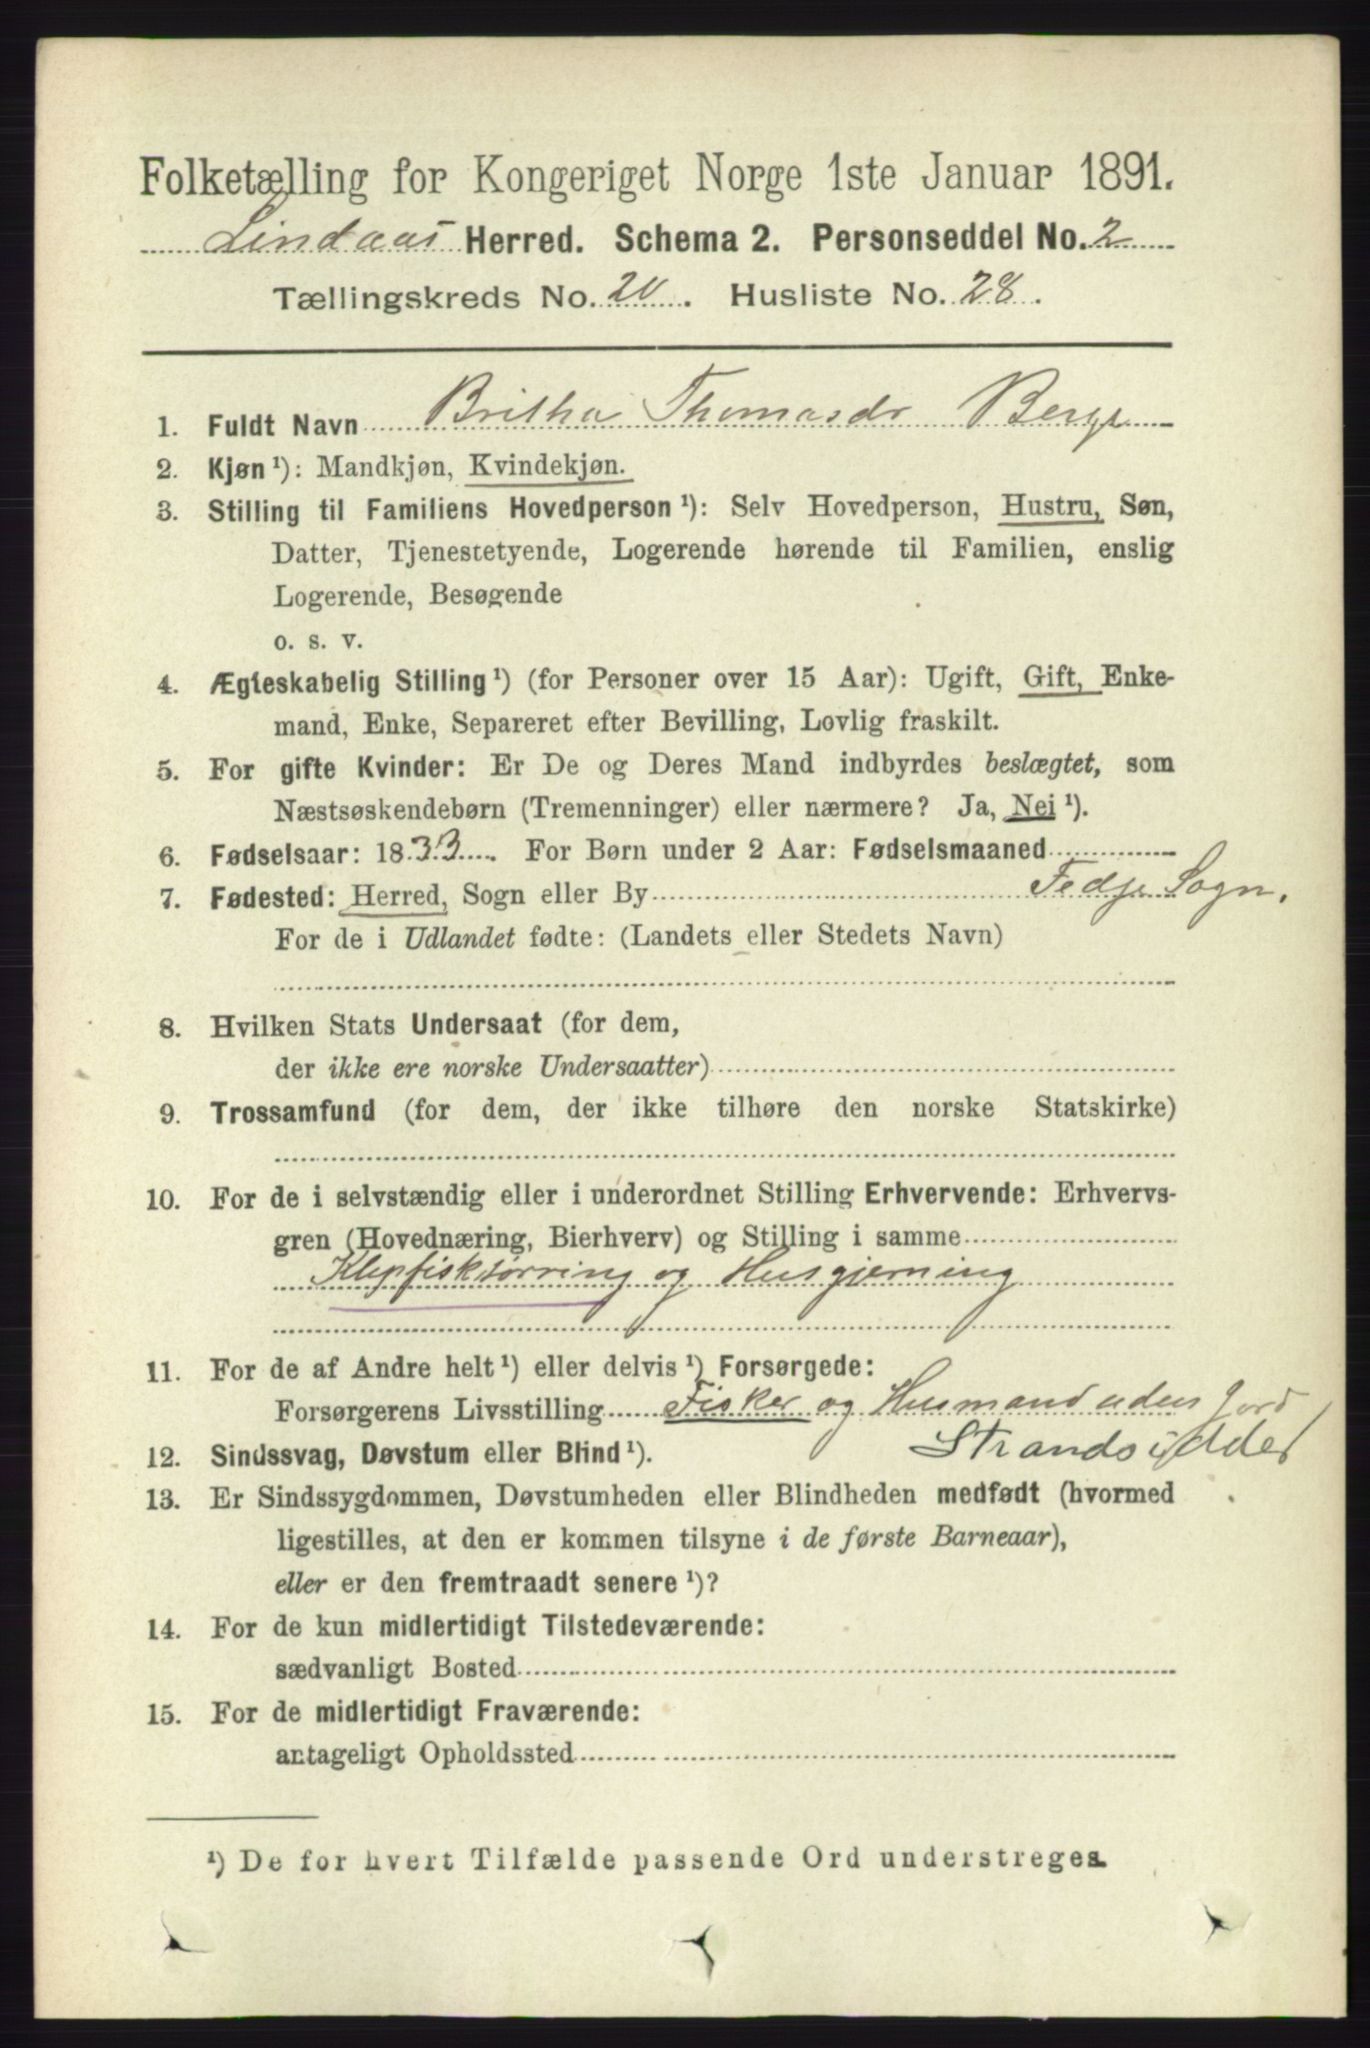 Folketælling for Kongeriget Norge 1ste Januar 1891.
Lindaas Herred. Schema 2. Personseddel No. 2
Tællingskreds No. 20. Husliste No. 28.
1. Fuldt Navn Britha Thomasdr Berge
2. Kjøn ¹): Mandkjøn, Kvindekjøn.
3. Stilling til Familiens Hovedperson ¹): Selv Hovedperson, Hustru, Søn,
Datter, Tjenestetyende, Logerende hørende til Familien, enslig
Logerende, Besøgende
o. s. v.
4. Ægteskabelig Stilling ¹) (for Personer over 15 Aar): Ugift, Gift, Enke-
mand, Enke, Separeret efter Bevilling, Lovlig fraskilt.
5. For gifte Kvinder: Er De og Deres Mand indbyrdes beslægtet, som
Næstsøskendebørn (Tremenninger) eller nærmere? Ja, Nei ¹).
6. Fødselsaar: 1833. For Børn under 2 Aar: Fødselsmaaned
7. Fødested: Herred, Sogn eller By Fedje Sogn.
For de i Udlandet fødte: (Landets eller Stedets Navn)
8. Hvilken Stats Undersaat (for dem,
der ikke ere norske Undersaatter)
9. Trossamfund (for dem, der ikke tilhøre den norske Statskirke)
10. For de i selvstændig eller i underordnet Stilling Erhvervende: Erhvervs-
gren (Hovednæring, Bierhverv) og Stilling i samme
Klepfisktørring og Husgjerning
11. For de af Andre helt ¹) eller delvis ¹) Forsørgede:
Forsørgerens Livsstilling Fisker og Husmand uden Jord
Strandsidder
12. Sindssvag, Døvstum eller Blind ¹).
13. Er Sindssygdommen, Døvstumheden eller Blindheden medfødt (hvormed
ligestilles, at den er kommen tilsyne i de første Barneaar),
eller er den fremtraadt senere ¹)?
14. For de kun midlertidigt Tilstedeværende:
sædvanligt Bosted
15. For de midlertidigt Fraværende:
antageligt Opholdssted
¹) De for hvert Tilfælde passende Ord understreges.